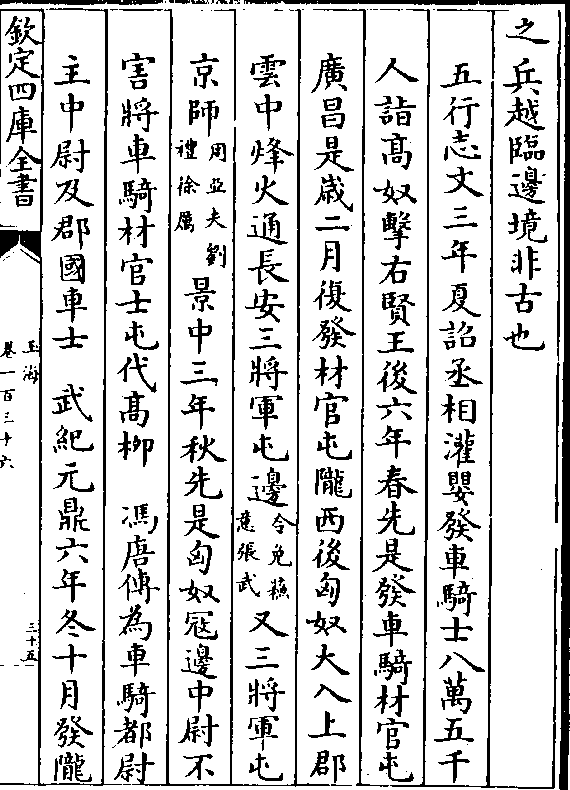 之兵越臨邊境非古也
五行志文三年夏詔丞相灌嬰發車騎士八萬五千
人詣高奴擊右賢王後六年春先是發車騎材官屯
廣昌是歲二月復發材官屯隴西後匈奴大入上郡
雲中烽火通長安三將軍屯邊令免蘇意張武又三將軍屯
京師周亞夫劉禮徐厲景中三年秋先是匈奴寇邊中尉不
害將車騎材官士屯代高柳　馮唐傳為車騎都尉
主中尉及郡國車士　武紀元鼎六年冬十月發隴
欽定四庫全書
玉海
卷一百三十六
三十五